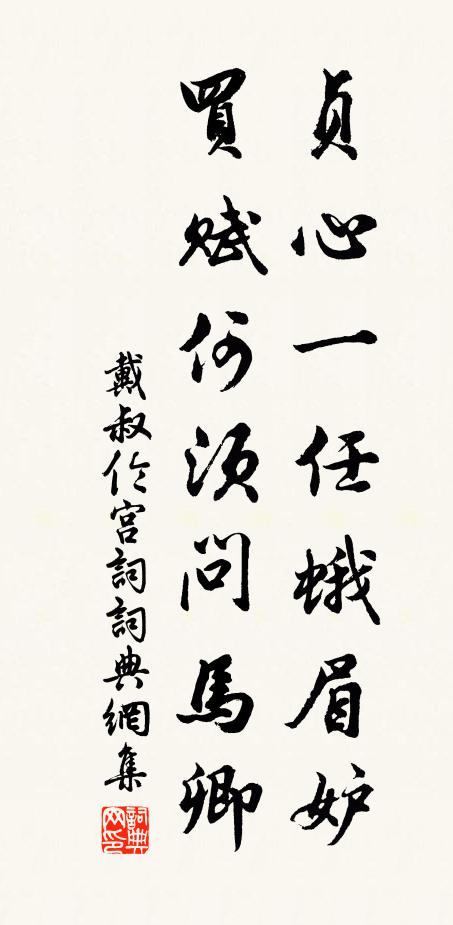 貞心一任蛾眉妒
買賦何須問馬卿
戴叔伦宮詞詞典網集
詞典网印